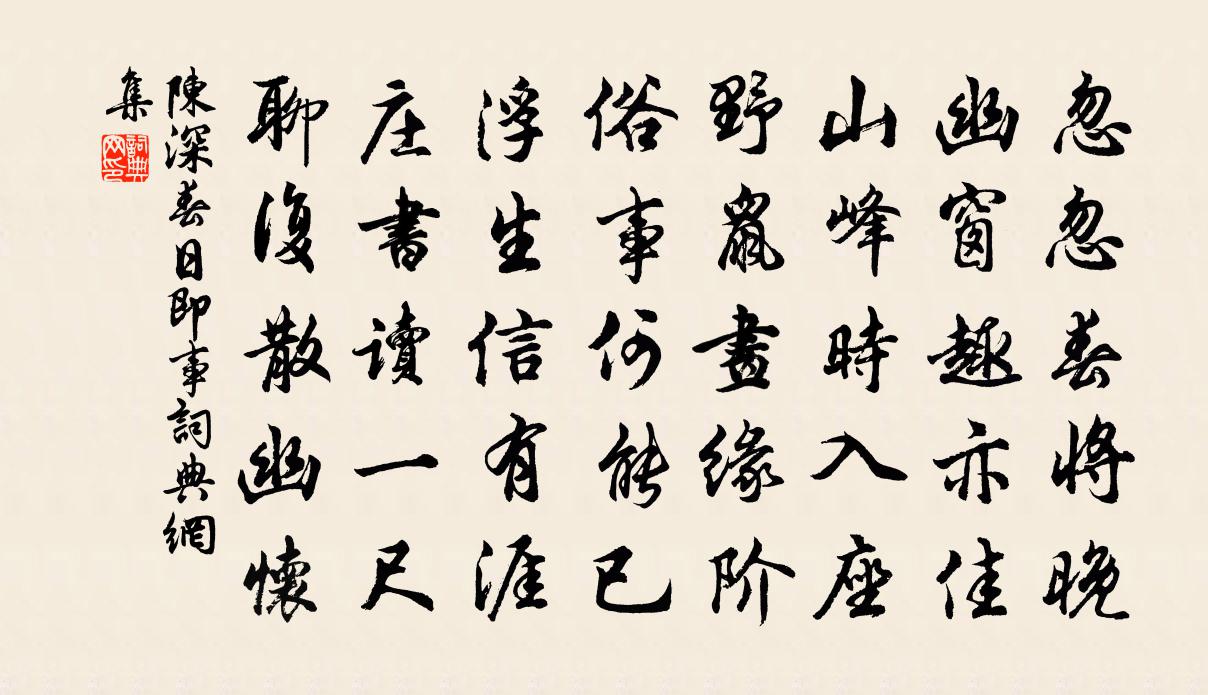 忽忽春將晚
幽窗趣亦佳
山峰時入座
野鼠畫緣阶
俗事何能已
浮生信有涯
庄書讀一尺
聊復散幽懷
陳深春日即事詞典網
集
詞典
网印